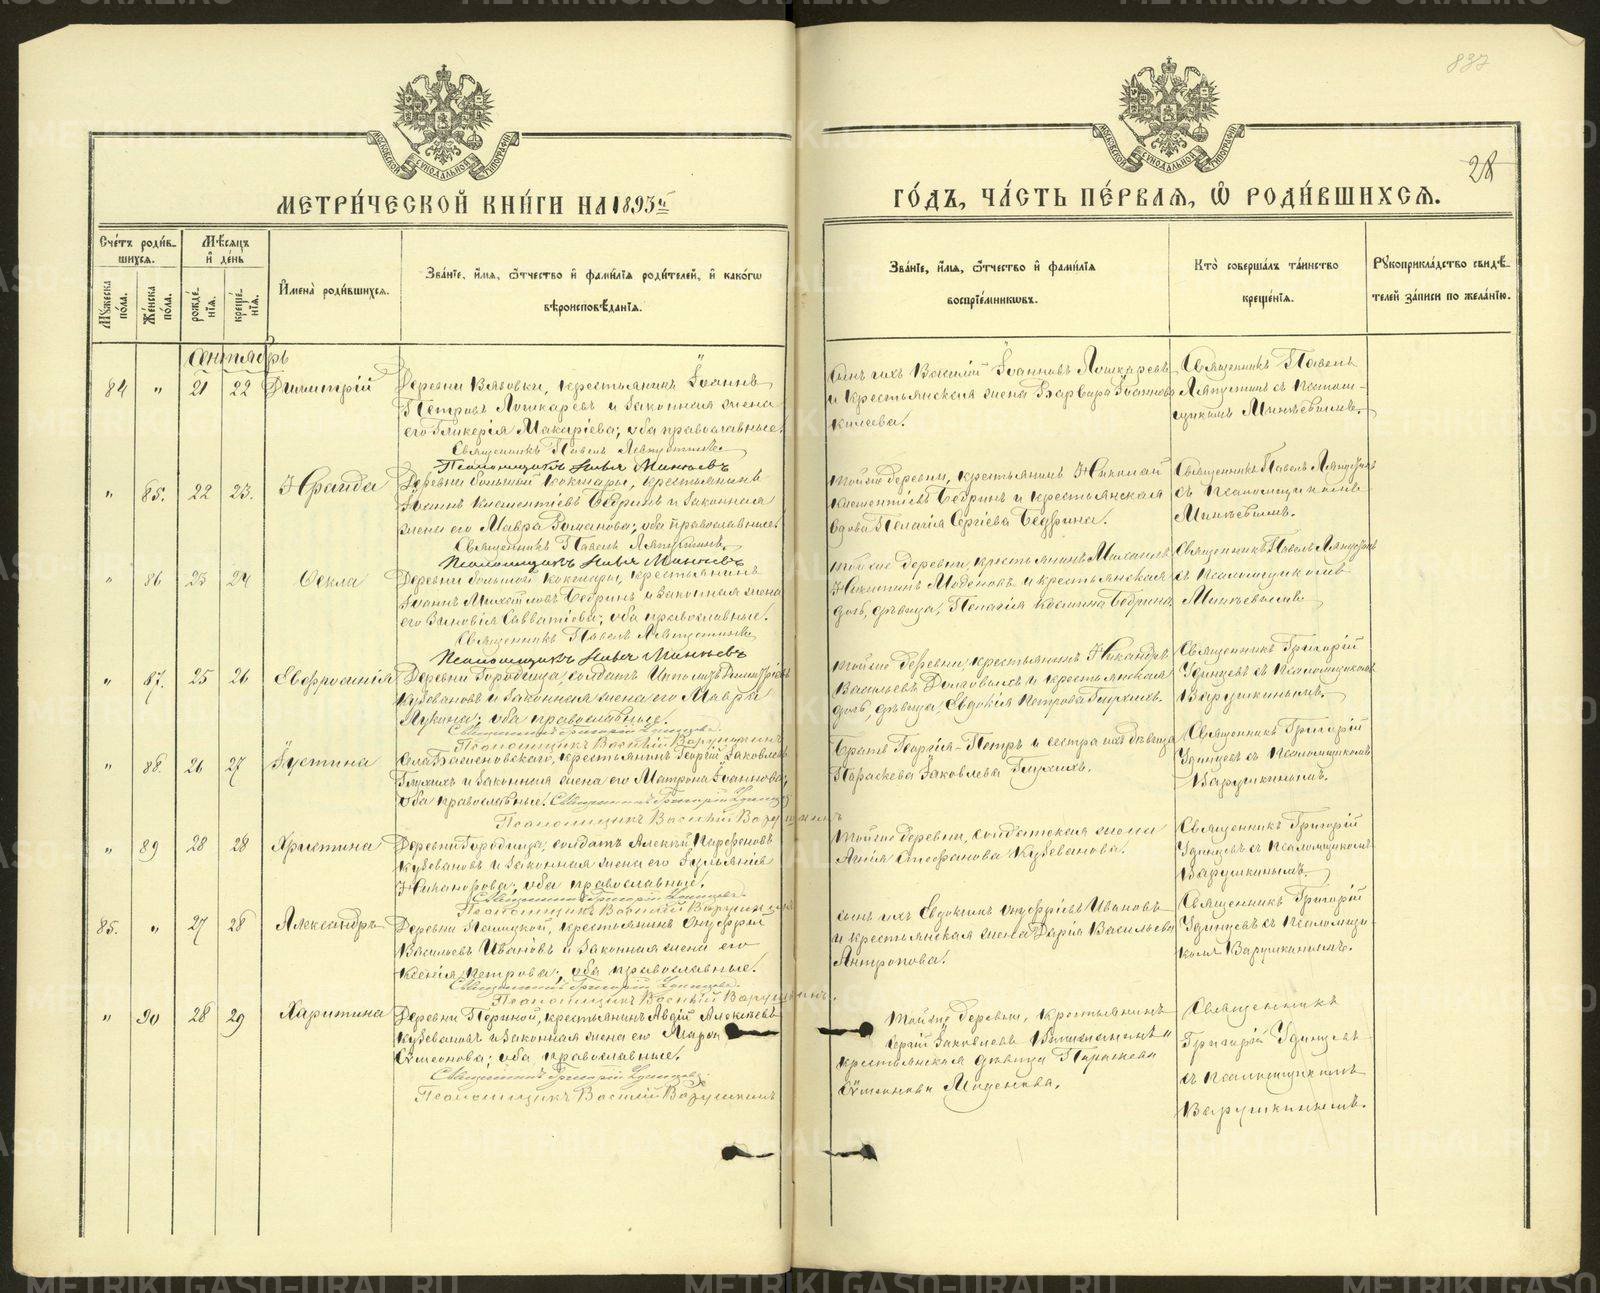 837
28
МЕТРИ́ЧЕСКОЙ КНИ́ГИ НА 1893й
ГО́ДЪ, ЧА́СТЬ ПЕ́РВАѦ, Ѡ҆ РОДИ́ВШИХСѦ.
Сче́тъ роди́в-
шихсѧ.
Мѣ́сѧцъ
и҆ де́нь
Му́жеска
по́ла.
Же́нска
по́ла.
рожде́-
нїѧ.
креще́-
нїѧ.
И҆мена̀ роди́вшихсѧ.
Зва́нїе, и҆́мѧ, ѻ҆́тчество и҆ фами́лїѧ роди́телей, и҆ како́гѡ
вѣроисповѣ́данїѧ.
Зва́нїе, и҆́мѧ, ѻ҆́тчество и҆ фами́лїѧ
воспрїе́мникѡвъ.
Кто̀ соверша́лъ та́инство
креще́нїѧ.
Рꙋкоприкла́дство свидѣ́-
телей за́писи по жела́нїю.
Сентябрь
84 " 21 22 Димитрій
Деревни Вязовки, крестьянинъ Іоаннъ
Петровъ Лошкаревъ и законная жена
его Гликерія Макаріева; оба православные.
Священникъ Павелъ Ляпустинъ
Псаломщикъ Илья Минѣевъ
Сынъ ихъ Василій Іоанновъ Лошкаревъ
и крестьянская жена Варвара Іоаннова
Священникъ Павелъ
Ляпустинъ съ псалом-
щикомъ Минѣевымъ.
" 85. 22 23. Ираида
Деревни большой Кокшары, крестьянинъ
Іоаннъ Климентіевъ Бедринъ и законная
жена его Мавра Романова; оба православные.
Священникъ Павелъ Ляпустинъ.
Псаломщикъ Илья Минѣевъ
Той же деревни, крестьянинъ Николай
Климентіевъ Бедринъ и крестьянская
вдова Пелагія Сергіева Бедрина.
Священникъ Павелъ Ляпустинъ
съ псаломщикомъ
Минѣевымъ.
" 86 23 24 Ѳекла
Деревни большой Кокшары, крестьянинъ
Іоаннъ Михайловъ Бедринъ и законная жена
его Зиновія Савватіева; оба православные.
Священникъ Павелъ Ляпустинъ
Псаломщикъ Илья Минѣевъ
Той же деревни, крестьянинъ Михаилъ
Никитинъ Моденовъ и крестьянская
дочь, дѣвица, Пелагія Бедрина.
Священникъ Павелъ Ляпустинъ
съ псаломщикомъ
Минѣевымъ
" 87. 25 26 Евфросинія
Деревни Городища, солдатъ Ипполитъ Димитріевъ
Кубевановъ и законная жена его Мавра
Лукина; оба православные.
Священникъ Григорій Удинцевъ.
Псаломщикъ Василій Варушкинъ
Той же деревни, крестьянинъ Никандръ
Васильевъ Долговыхъ и крестьянская
дочь, дѣвица, Евдокія Петрова Глухихъ.
Священникъ Григорій
Удинцевъ съ псаломщикомъ
Варушкинымъ.
" 88. 26 27 Іустина
Села Башеновскаго, крестьянинъ Георгій Іаковлевъ
Глухихъ и законная жена его Матрона Іоаннова;
оба православные. Священникъ Григорій Удинцевъ
Псаломщикъ Василій Варушкинъ
Братъ Георгія - Петръ и сестра ихъ дѣвица
Параскева Іаковлева Глухихъ.
Священникъ Григорій
Удинцевъ съ псаломщикомъ
Варушкинымъ.
" 89 28 28 Христина
Деревни Городища, солдатъ Алексій Парфеновъ
Кубевановъ и законная жена его Іульянія
Никанорова; оба православные.
Священникъ Григорій Удинцевъ.
Псаломщикъ Василій Варушкинъ
Той же деревни, солдатская жена
Анія Стефанова Кубеванова.
Священникъ Григорій
Удинцевъ съ псаломщикомъ
Варушкинымъ.
85. " 27 28 Александръ
Деревни Палицкой, крестьянинъ Онуфрій
Васильевъ Ивановъ и законная жена его
Ксенія Петрова; оба православные.
Священникъ Григорій Удинцевъ.
Псаломщикъ Василій Варушкинъ.
Сынъ ихъ Евдокимъ Онуфріевъ Ивановъ
и крестьянская жена Дарія Васильева
Антропова.
Священникъ Григорій
Удинцевъ съ псаломщи-
комъ Варушкинымъ.
" 90 28 29 Харитина
Деревни Периной, крестьянинъ Авдій Алексѣевъ
Кубевановъ и законная жена его Марія
Сѵмеонова; оба православные.
Священникъ Григорій Удинцевъ
Псаломщикъ Василій Варушкинъ
Той же деревни, крестьянинъ
Сергій Іаковлевъ и
крестьянская дѣвица Параскева
Сѵмеонова Моденова.
Священникъ
Григорій Удинцевъ
съ псаломщикомъ
Варушкинымъ.
METRIKI.GASO-URAL.RU